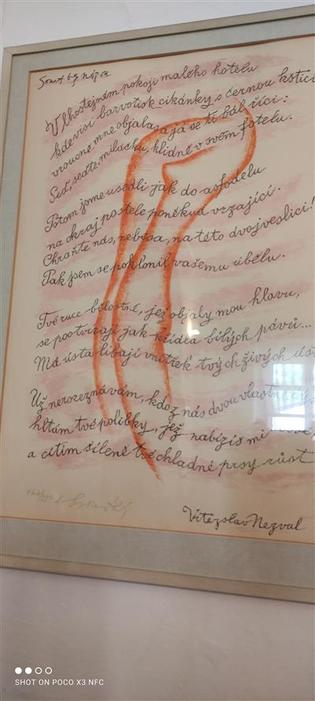 V lhostejném pokoji malého hotelu
kde visí barvotisk cikánky s černou kšticí
vroucně mne objala, a já se ti bál říci:
Seď, seďte, miláčku, klidně v svém fotelu.
Potom jsme usedli jak do asfodelu
na okraj postele poněkud vrzající.
Chraňte nás, nebesa, na této dvojveslici!
Tak jsem se poklonil vašemu úbělu.
Tvé ruce bělostné, jež objaly mou hlavu,
se pootvírají jak křídla bílých pávů...
Má ústa líbají vnitřek tvých živých
Už nerozeznávám, kdo z nás dvou vlastně
hltám tvé polibky, jež nabízíš mi
a cítím šíleně tvé chladné prsy růst
Vítězslav Nezval
SHOT ON POCO X3 NFC